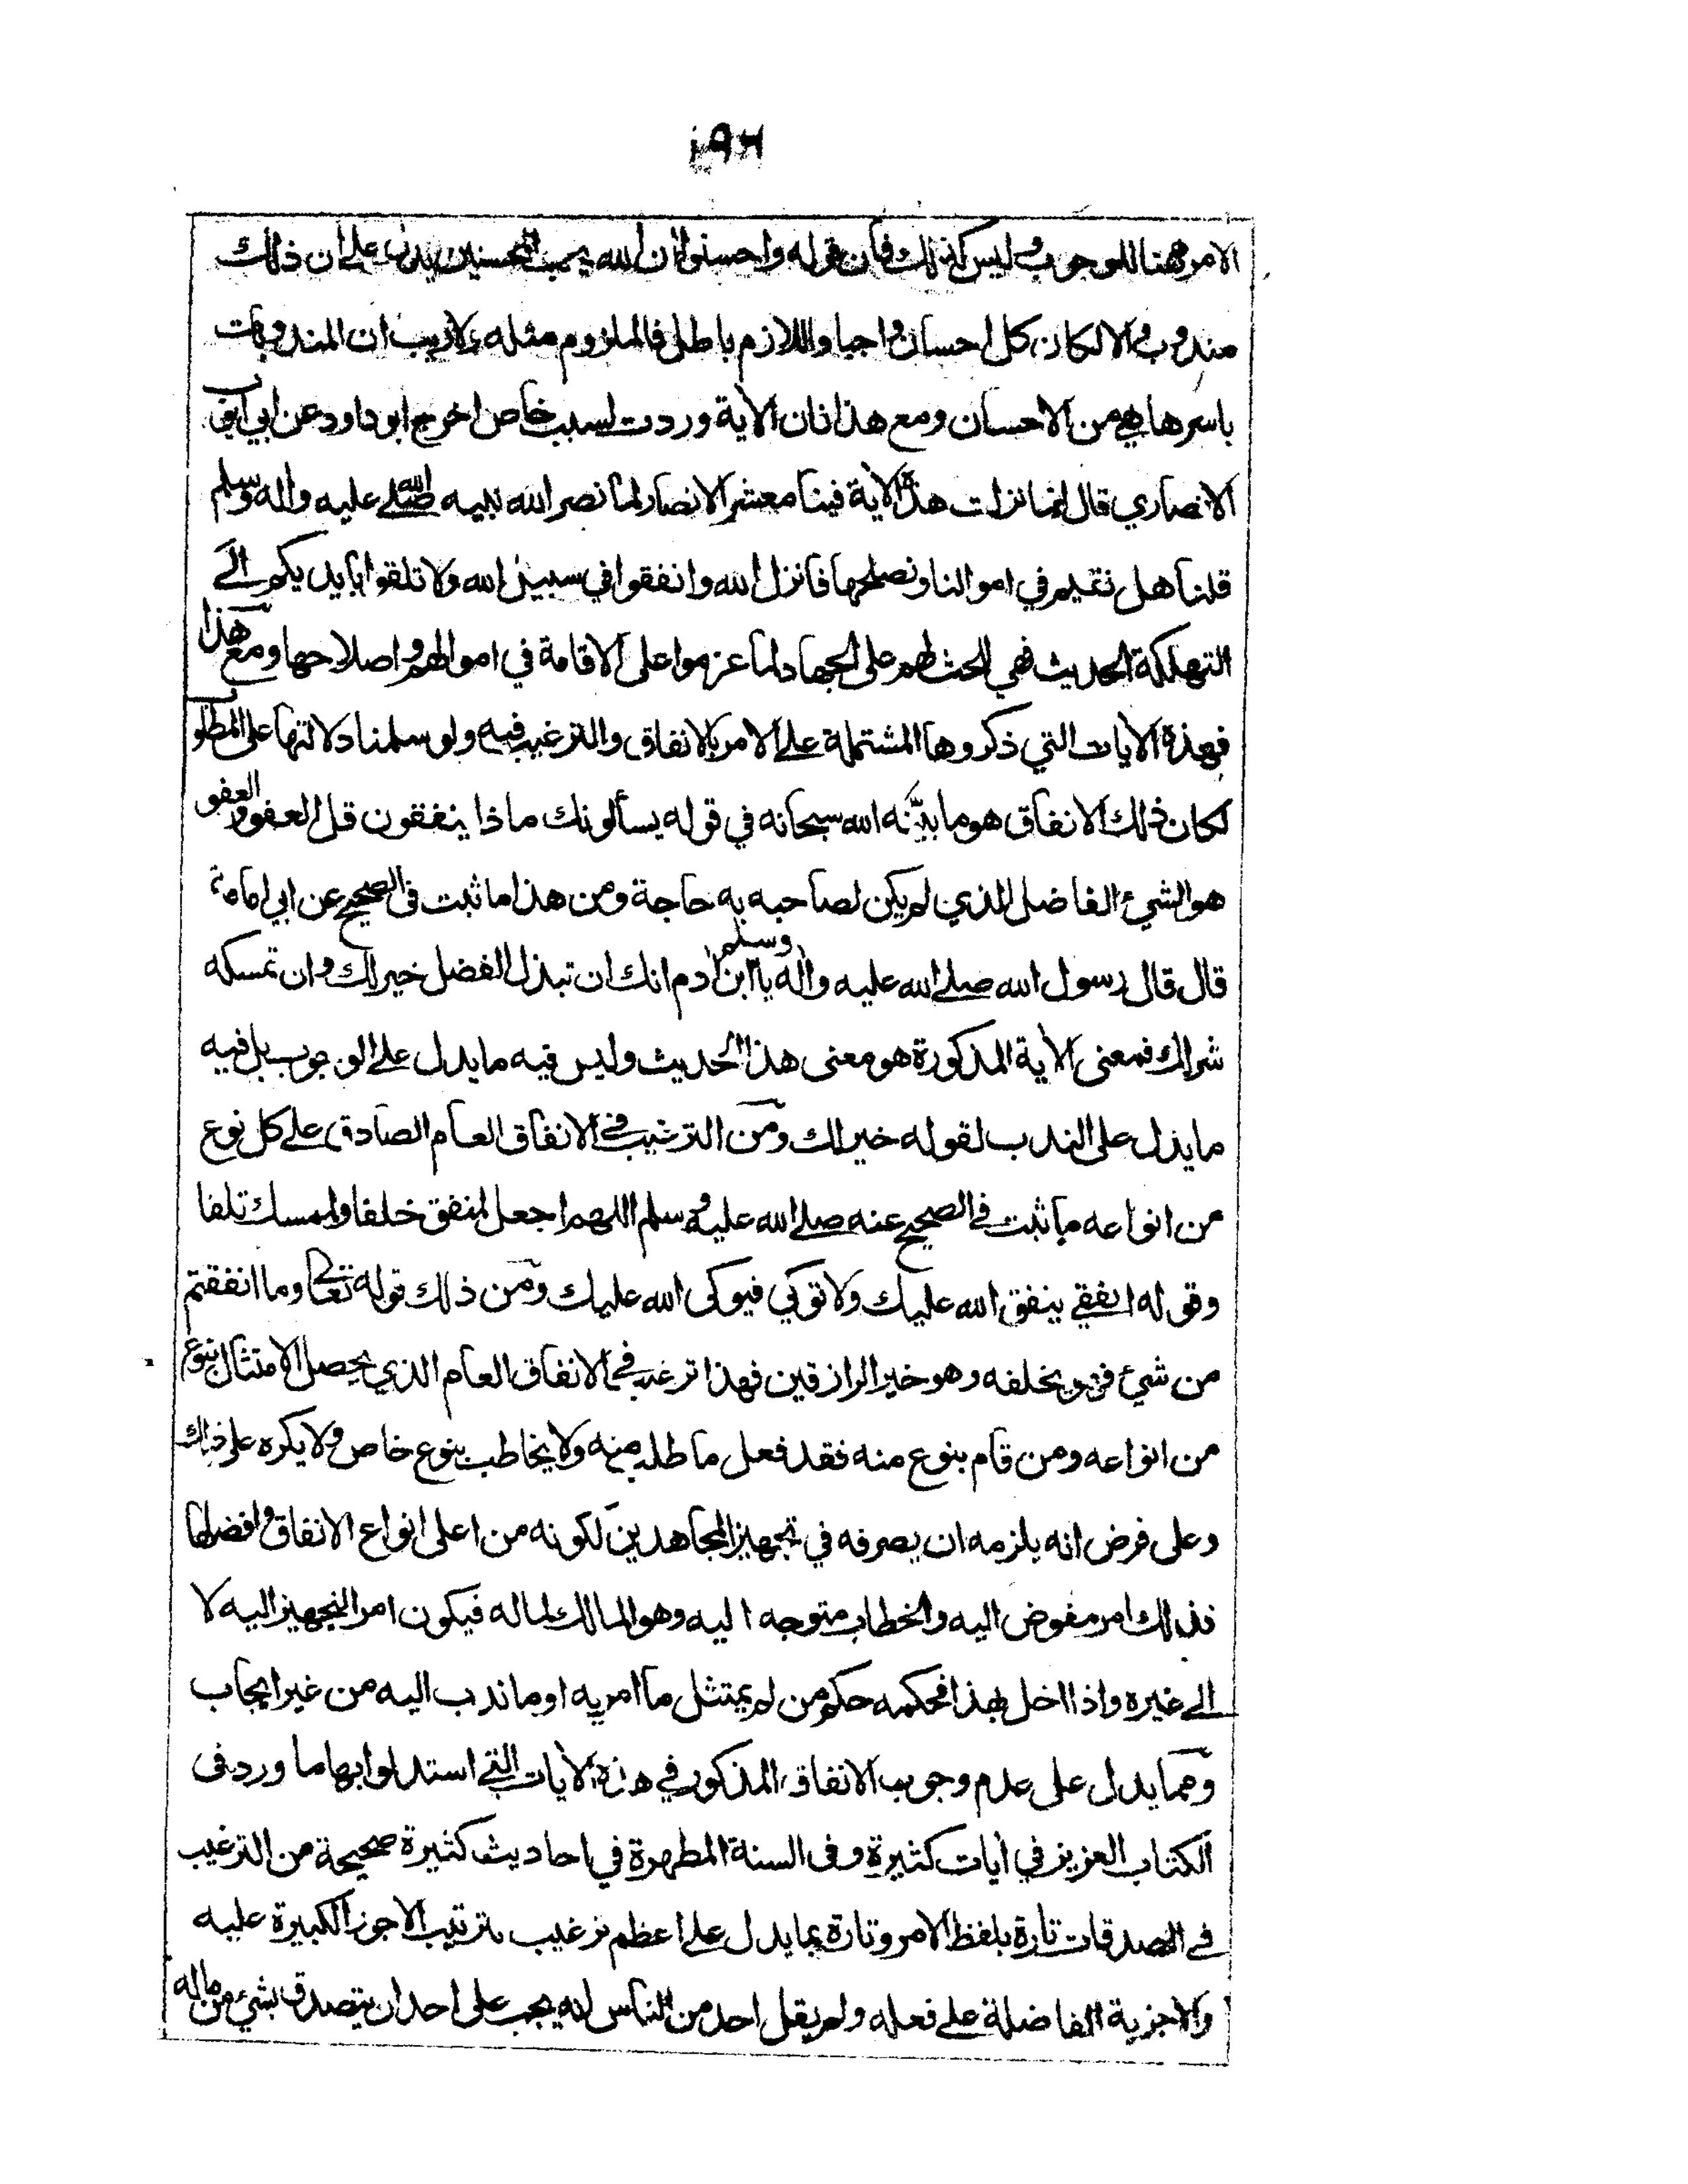 الامر ههنا للوجوب وليس كذلك فان قوله واحسنوا ان الله يحب المحسنين يدل على ان ذلك
مندوب والا لكان كل احسان واجبا واللازم باطل فالملزوم مثله ولاريب ان المندوبات
باسرها هي من الاحسان ومع هذا فان الآية وردت لسبب خاص اخرج ابو داود عن ابي ايوب
الانصاري قال انما نزلت هذه الآية فينا معشر الانصار لما نصر الله نبيه صلى الله عليه واله وسلم
قلنا هل نقيم في اموالنا ونصلحها فانزل الله وانفقوا في سبيل الله ولا تلقوا بايديكم الى
التهلكة الحديث فهي للحث لهم على الجهاد لما عزموا على الاقامة في اموالهم واصلاحها ومع هذا
فهذه الآيات التي ذكروها المشتملة على الامر بالانفاق والترغيب فيه ولو سلمنا دلالتها على المطلوب
لكان ذلك الانفاق هو ما بينه الله سبحانه في قوله يسألونك ماذا ينفقون قل العفو والعفو
هو الشيء الفاضل الذي لم يكن لصاحبه به حاجة ومن هذا ما ثبت في الصحيح عن ابي امامة
قال قال رسول الله صلى الله عليه واله وسلم يا ابن ادم انك ان تبذل الفضل خير لك وان تمسكه
شر لك فمعنى الآية المذكورة هو معنى هذا الحديث وليس فيه ما يدل على الوجوب بل فيه
ما يدل على الندب لقوله خير لك ومن الترغيب في الانفاق العام الصادق على كل نوع
من انواعه ما ثبت في الصحيح عنه صلى الله عليه وسلم اللهم اجعل لمنفق خلفا ولممسك تلفا
وقوله انفقي ينفق الله عليك ولا توكي فيوكى الله عليك ومن ذلك قوله تعالى وما انفقتم
من شيء فهو يخلفه وهو خير الرازقين فهذا ترغيب في الانفاق العام الذي يحصل الامتثال بنوع
من انواعه ومن قام بنوع منه فقد فعل ما طلب منه ولا يخاطب بنوع خاص ولا يكره على ذلك
وعلى فرض انه يلزمه ان يصرفه في تجهيز المجاهدين لكونه من اعلى انواع الانفاق وافضلها
فذلك امر مفوض اليه والخطاب متوجه اليه وهو المالك لماله فيكون امر التجهيز اليه لا
الى غيره واذا اخل بهذا فحكمه حكم من لم يمتثل ما امر به او ما ندب اليه من غير ايجاب
ومما يدل على عدم وجوب الانفاق المذكور في هذه الآيات التي استدلوا بها ما ورد فى
الكتاب العزيز في آيات كثيرة وفى السنة المطهرة في احاديث كثيرة صحيحة من الترغيب
في الصدقات تارة بلفظ الامر وتارة بما يدل على اعظم ترغيب بترتيب الاجور الكبيرة عليه
والاجزية الفاضلة على فعله ولم يقل احد من الناس انه يجب على احد ان يتصدق بشيء من ماله